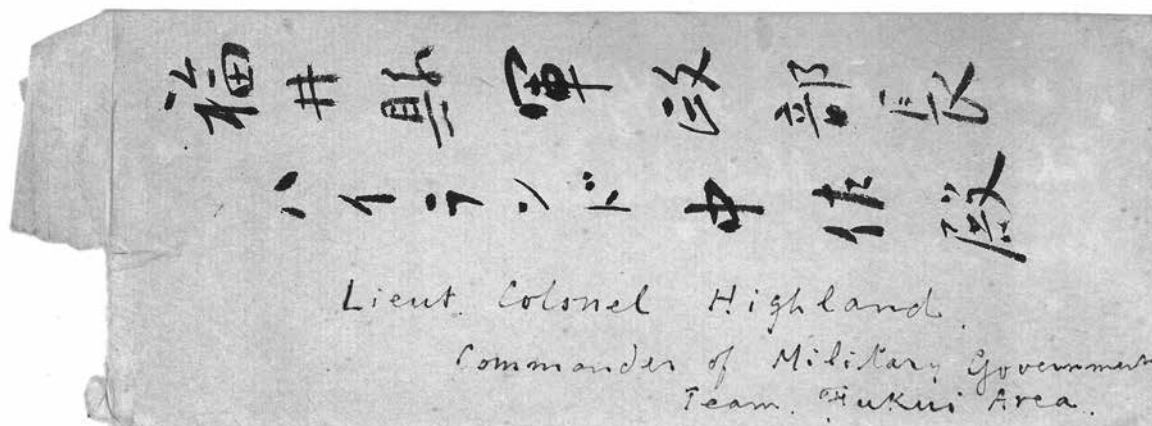 福井縣軍政部長
ハイランド中佐殿
Lieut. Colonel Highland.
Commander of Military Government
Team. Fukui Area.